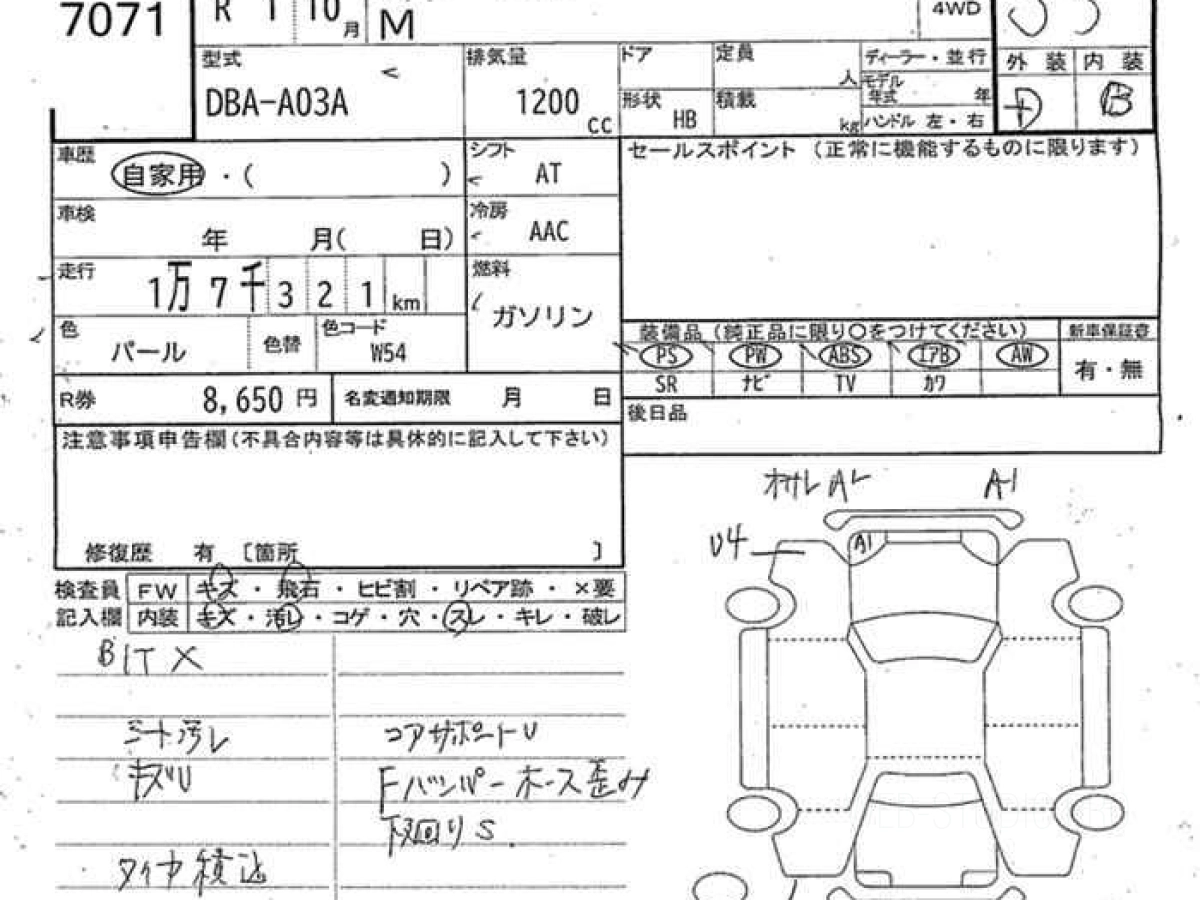 7071
R 1 10月
M
4WD
型式
DBA-A03A
排気量
1200
cc
ドア
定員
人
形状 HB
積載
kg
ディーラー・並行
モデル年式 年
ハンドル 左・右
外装 内装
D B
車歴
自家用・( )
シフト
AT
車検
年 月( 日)
冷房
AAC
走行
1万7千321km
燃料
ガソリン
色
パール
色替
色コード
W54
R券 8,650円
名変通知期限 月 日
セールスポイント (正常に機能するものに限ります)
装備品 (純正品に限り○をつけてください)
新車保証書
PS PW ABS エアB AW
有・無
SR ナビ TV カワ
後日品
注意事項申告欄(不具合内容等は具体的に記入して下さい)
修復歴 有 [箇所 ]
検査員 FW キズ・飛石・ヒビ割・リペア跡・×要
記入欄 内装 キズ・汚レ・コゲ・穴・スレ・キレ・破レ
シート汚レ
コアサポートU
キズU
Fバンパーホース歪み
下回りS
タイヤ積込
A1
U4
A1